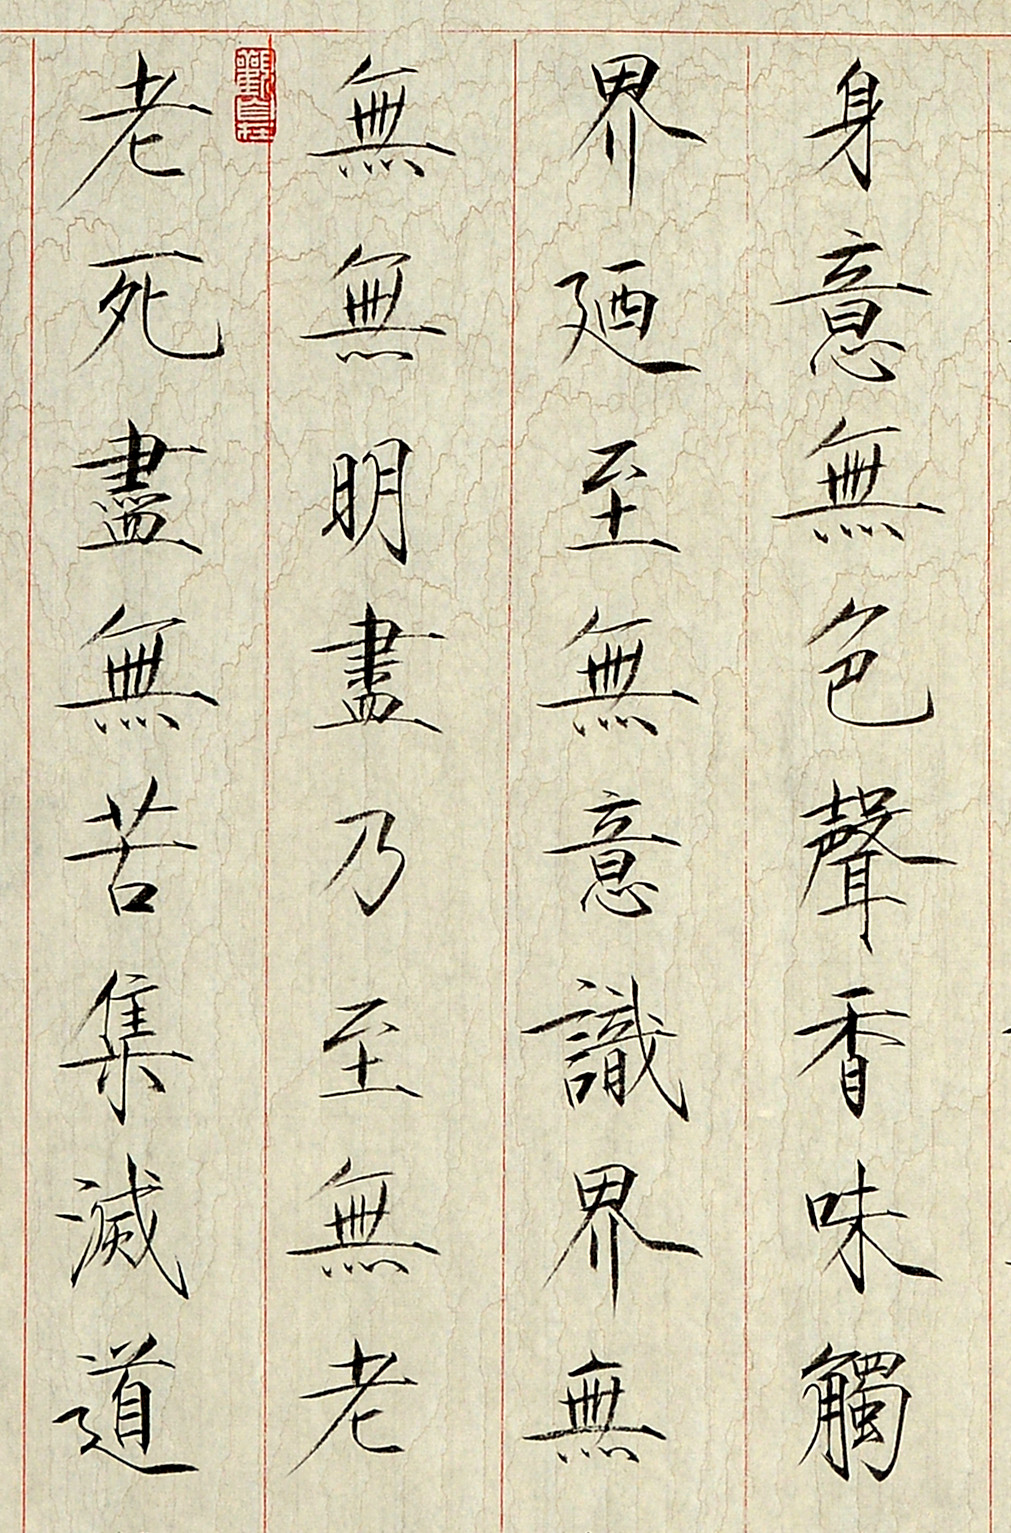 身意無色聲香味觸
界廼至無意識界無
無無明盡乃至無老
老死盡無苦集滅道